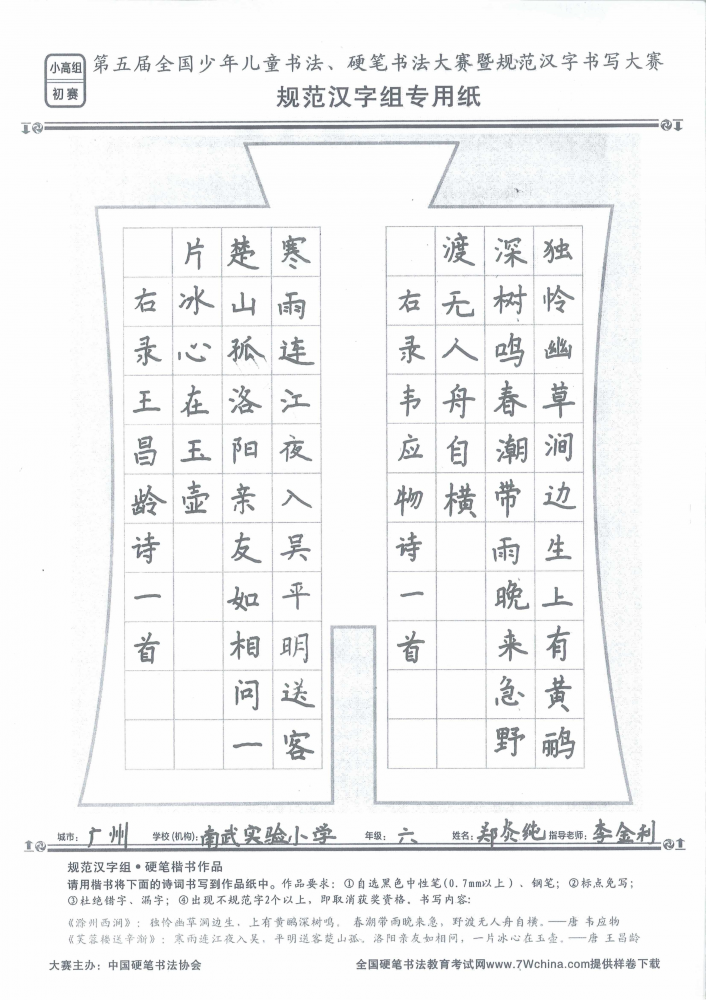 小高组
初赛
第五届全国少年儿童书法、硬笔书法大赛暨规范汉字书写大赛
规范汉字组专用纸
独怜幽草涧边生上有黄鹂
深树鸣春潮带雨晚来急野
渡无人舟自横
右录韦应物诗一首
寒雨连江夜入吴平明送客
楚山孤洛阳亲友如相问一
片冰心在玉壶
右录王昌龄诗一首
城市：广州 学校(机构)：南武实验小学 年级：六 姓名：郑炎纯 指导老师：李金利
规范汉字组•硬笔楷书作品
请用楷书将下面的诗词书写到作品纸中。作品要求：①自选黑色中性笔(0.7mm以上)、钢笔；②标点免写；
③杜绝错字、漏字；④出现不规范字2个以上，即取消获奖资格。书写内容：
《滁州西涧》：独怜幽草涧边生，上有黄鹂深树鸣。 春潮带雨晚来急，野渡无人舟自横。——唐 韦应物
《芙蓉楼送辛渐》：寒雨连江夜入吴，平明送客楚山孤。洛阳亲友如相问，一片冰心在玉壶。——唐 王昌龄
大赛主办：中国硬笔书法协会 全国硬笔书法教育考试网www.7Wchina.com提供样卷下载